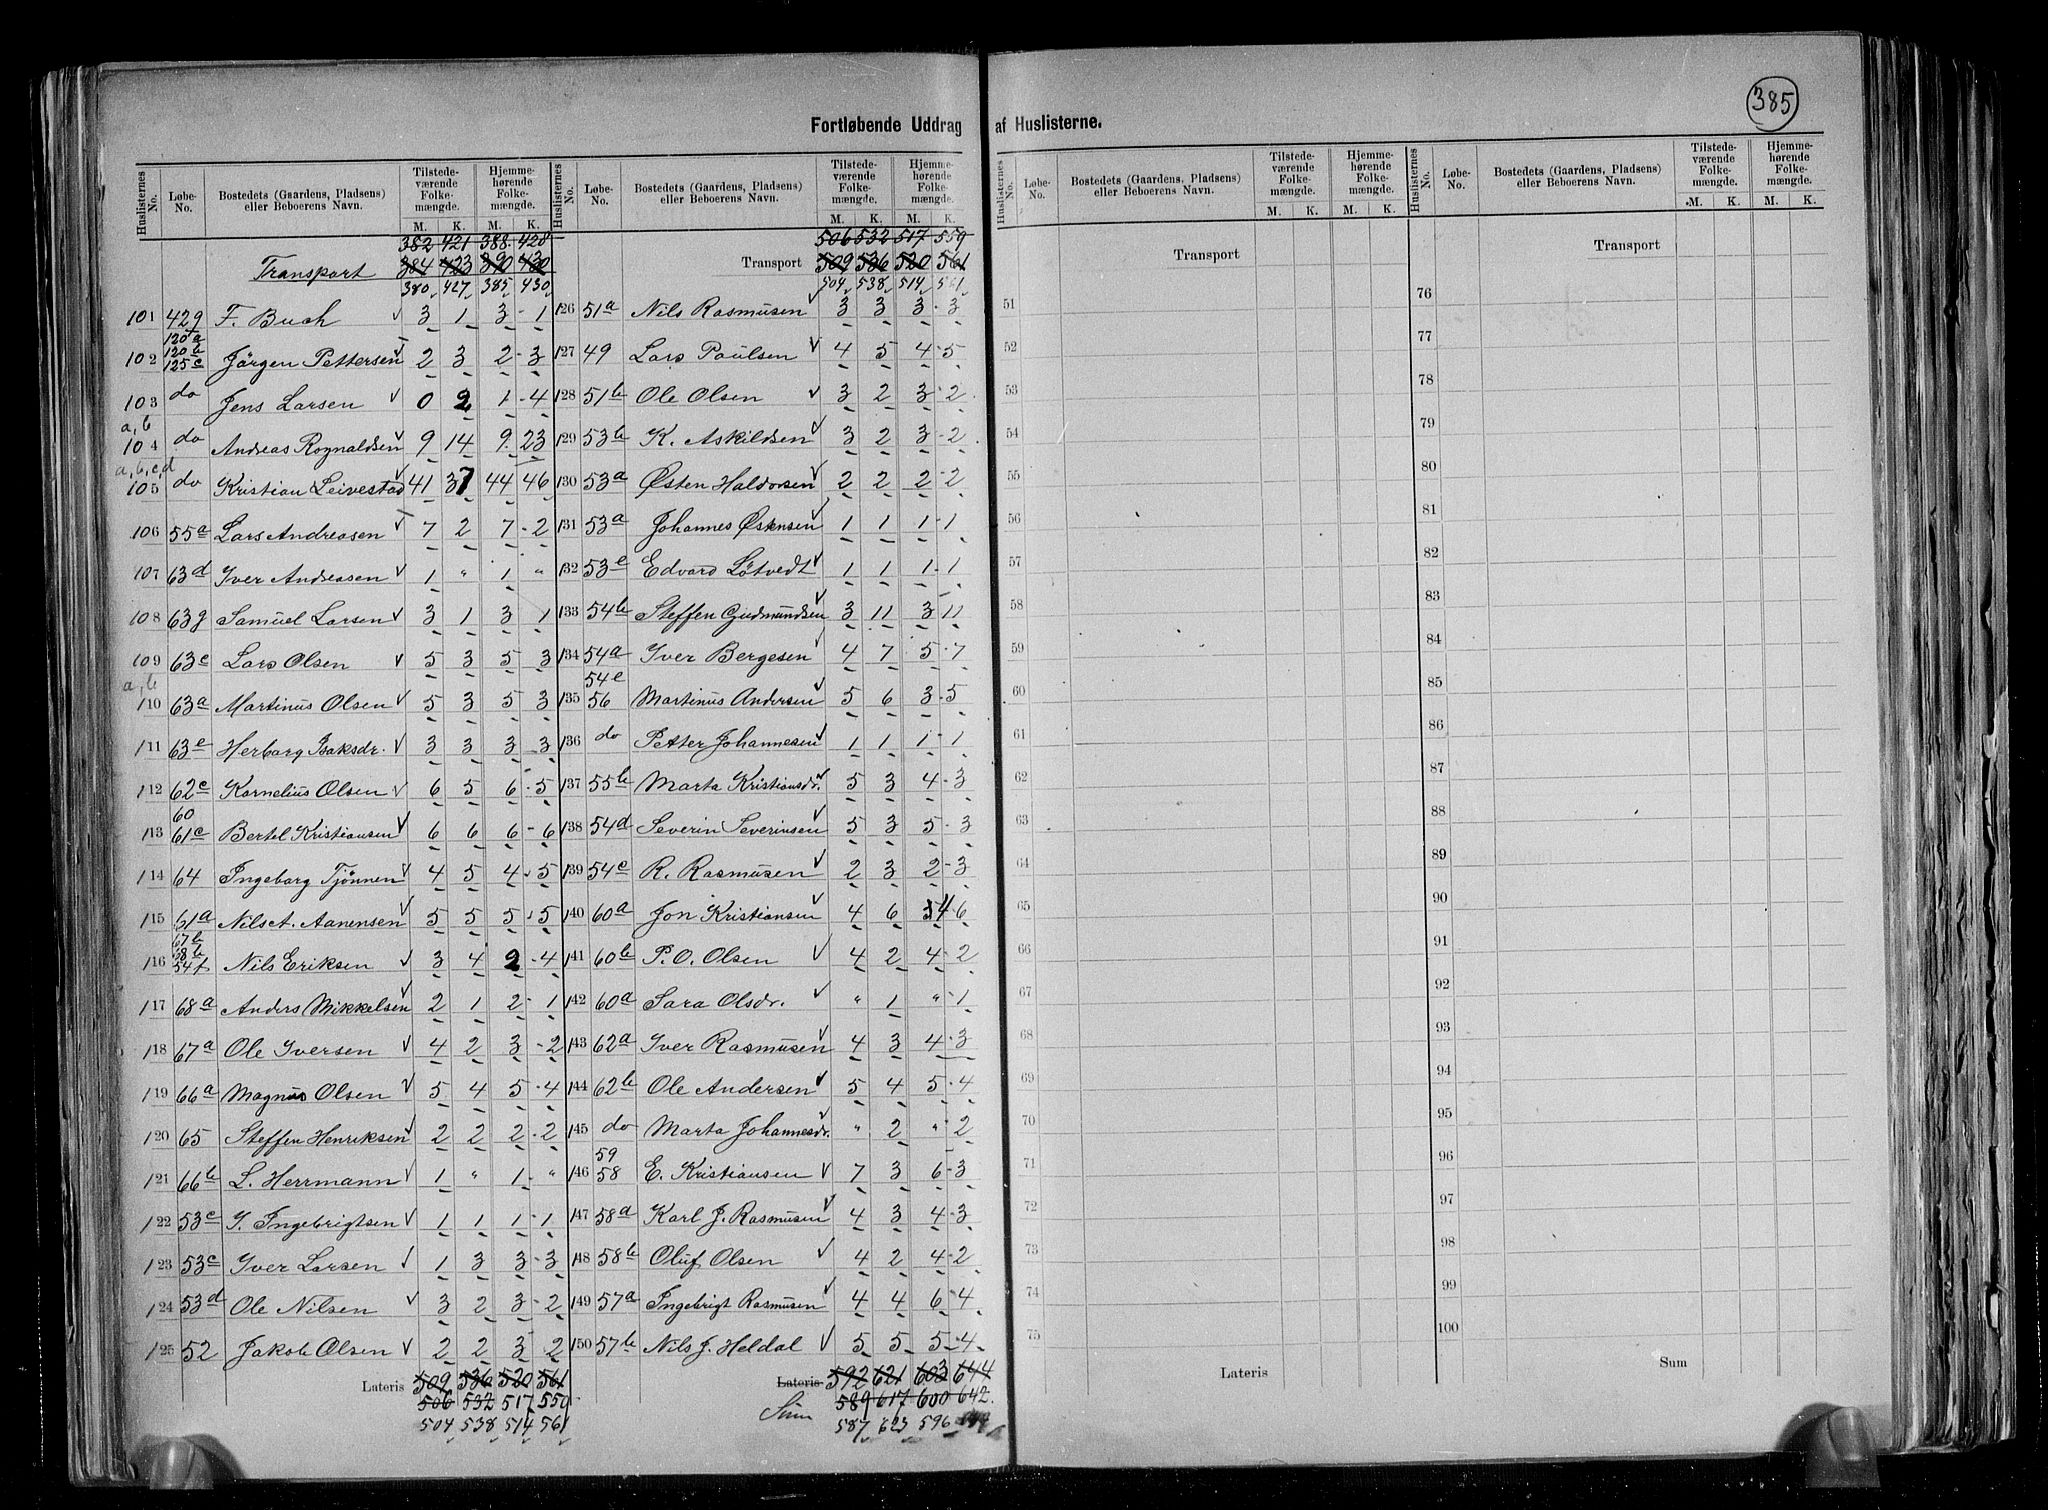 385
Fortløbende Uddrag af Huslisterne.
Huslisternes No. Løbe-No. Bostedets (Gaardens, Pladsens) eller Beboerens Navn. Tilstedeværende Folkemængde. M. K. Hjemmehørende Folkemængde. M. K.
382 421 388 428
Transport 384 423 390 430
380 427 385 430
101 429 F. Buch 3 1 3 1
120a 120b
102 125c Jörgen Pettersen 2 3 2 3
103 do Jens Larsen 0 2 1 4
a, b
104 do Andreas Rognaldsen 9 14 9 23
a, b, c, d
105 do Kristian Leivestad 41 37 44 46
106 55a Lars Andreasen 7 2 7 2
107 63d Iver Andreasen 1 " 1 "
108 63g Samuel Larsen 3 1 3 1
109 63c Lars Olsen 5 3 5 3
a, b
110 63a Martinus Olsen 5 3 5 3
111 63e Herborg Isaksdr. 3 3 3 3
112 62c Kornelius Olsen 6 5 6 5
60
113 61c Bertel Kristiansen 6 6 6 6
114 64 Ingeborg Tjönnen 4 5 4 5
115 61a Nils A. Aanensen 5 5 5 5
67b 68b
116 54f Nils Eriksen 3 4 2 4
117 68a Anders Mikkelsen 2 1 2 1
118 67a Ole Iversen 4 2 3 2
119 66a Magnus Olsen 5 4 5 4
120 65 Steffen Henriksen 2 2 2 2
121 66b L. Herrmann 1 " 1 "
122 53c I. Ingebrigtsen 1 1 1 1
123 53c Iver Larsen 1 3 3 3
124 53d Ole Nilsen 3 2 3 2
125 52 Jakob Olsen 2 2 3 2
Lateris 509 536 520 561
506 532 517 550
504 538 514 561
Huslisternes No. Løbe-No. Bostedets (Gaardens, Pladsens) eller Beboerens Navn. Tilstedeværende Folkemængde. M. K. Hjemmehørende Folkemængde. M. K.
506 532 517 559
Transport 509 536 520 561
504 538 514 561
126 51a Nils Rasmusen 3 3 3 3
127 49 Lars Poulsen 4 5 4 5
128 51b Ole Olsen 3 2 3 2
129 53b K. Askildsen 3 2 3 2
130 53a Østen Haldorsen 2 2 2 2
131 53a Johannes Østensen 1 1 1 1
132 53e Edvard Løtvedt 1 1 1 1
133 54b Steffen Gudmundsen 3 11 3 11
134 54a Iver Bergesen 4 7 5 7
54c
135 56 Martinus Andersen 5 6 3 5
136 do Petter Johannesen 1 1 1 1
137 55b Marta Kristiansdr. 5 3 4 3
138 54d Severin Severinsen 5 3 5 3
139 54e R. Rasmusen 2 3 2 3
140 60a Jon Kristiansen 4 6 4 6
141 60b P. O. Olsen 4 2 4 2
142 60a Sara Olsdr. " 1 " 1
143 62a Iver Rasmusen 4 3 4 3
144 62b Ole Andersen 5 4 5 4
145 do Marta Johannesdr. " 2 " 2
59
146 58 E. Kristiansen 7 3 6 3
147 58a Karl J. Rasmusen 4 3 4 3
148 58b Oluf Olsen 4 2 4 2
149 57a Ingebrigt Rasmusen 4 4 6 4
150 57b Nils J. Heldal 5 5 5 4
Lateris 592 621 603 644
589 617 600 642
Sum 587 623 596
Huslisternes No. Løbe-No. Bostedets (Gaardens, Pladsens) eller Beboerens Navn. Tilstedeværende Folkemængde. M. K. Hjemmehørende Folkemængde. M. K.
Transport
51
52
53
54
55
56
57
58
59
60
61
62
63
64
65
66
67
68
69
70
71
72
73
74
75
Lateris
Huslisternes No. Løbe-No. Bostedets (Gaardens, Pladsens) eller Beboerens Navn. Tilstedeværende Folkemængde. M. K. Hjemmehørende Folkemængde. M. K.
Transport
76
77
78
79
80
81
82
83
84
85
86
87
88
89
90
91
92
93
94
95
96
97
98
99
100
Sum